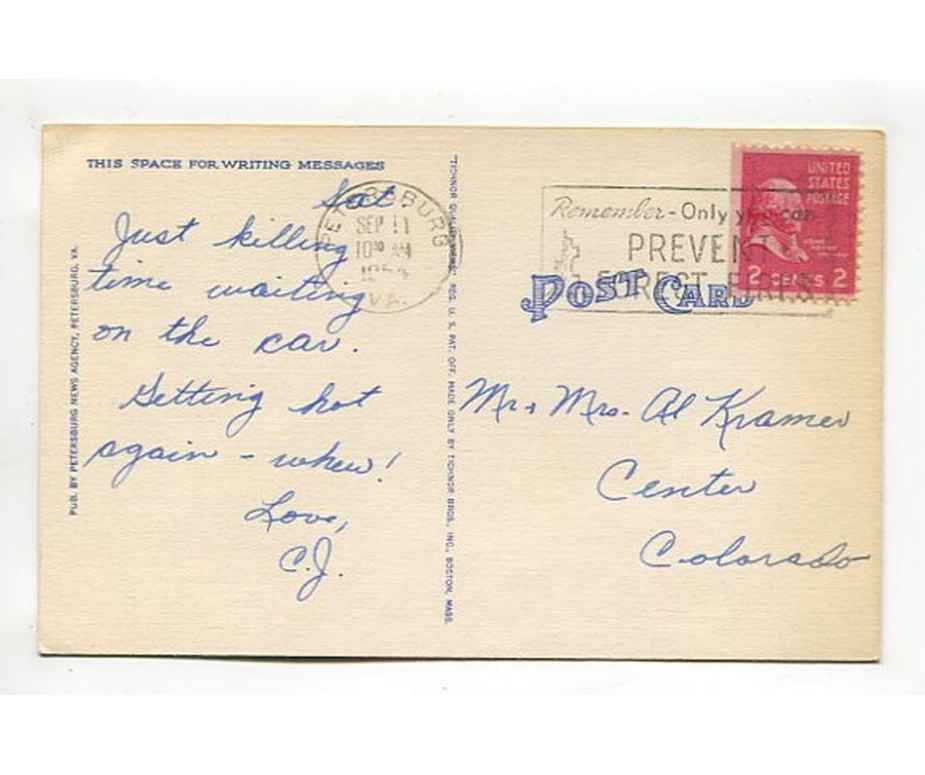 THIS SPACE FOR WRITING MESSAGES
Sat.
Just killing
time waiting
on the car.
Getting hot
again - whew!
Love,
C.J.
PUB. BY PETERSBURG NEWS AGENCY, PETERSBURG, VA.
REG. U. S. PAT. OFF. MADE ONLY BY TICHNOR BROS., INC., BOSTON, MASS.
PETERSBURG
SEP 11
10 AM
1954
VA.
Remember - Only you can
PREVENT
FOREST FIRES
UNITED
STATES
POSTAGE
2 CENTS 2
POST CARD
Mr. Mrs. Al Kramer
Center
Colorado